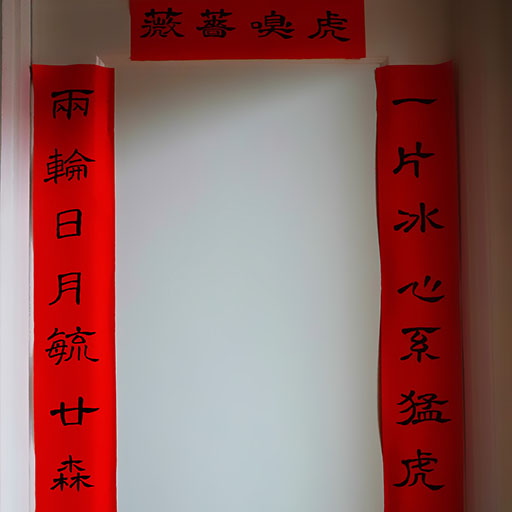 虎嗅薔薇
一片冰心系猛虎
兩輪日月毓廿森